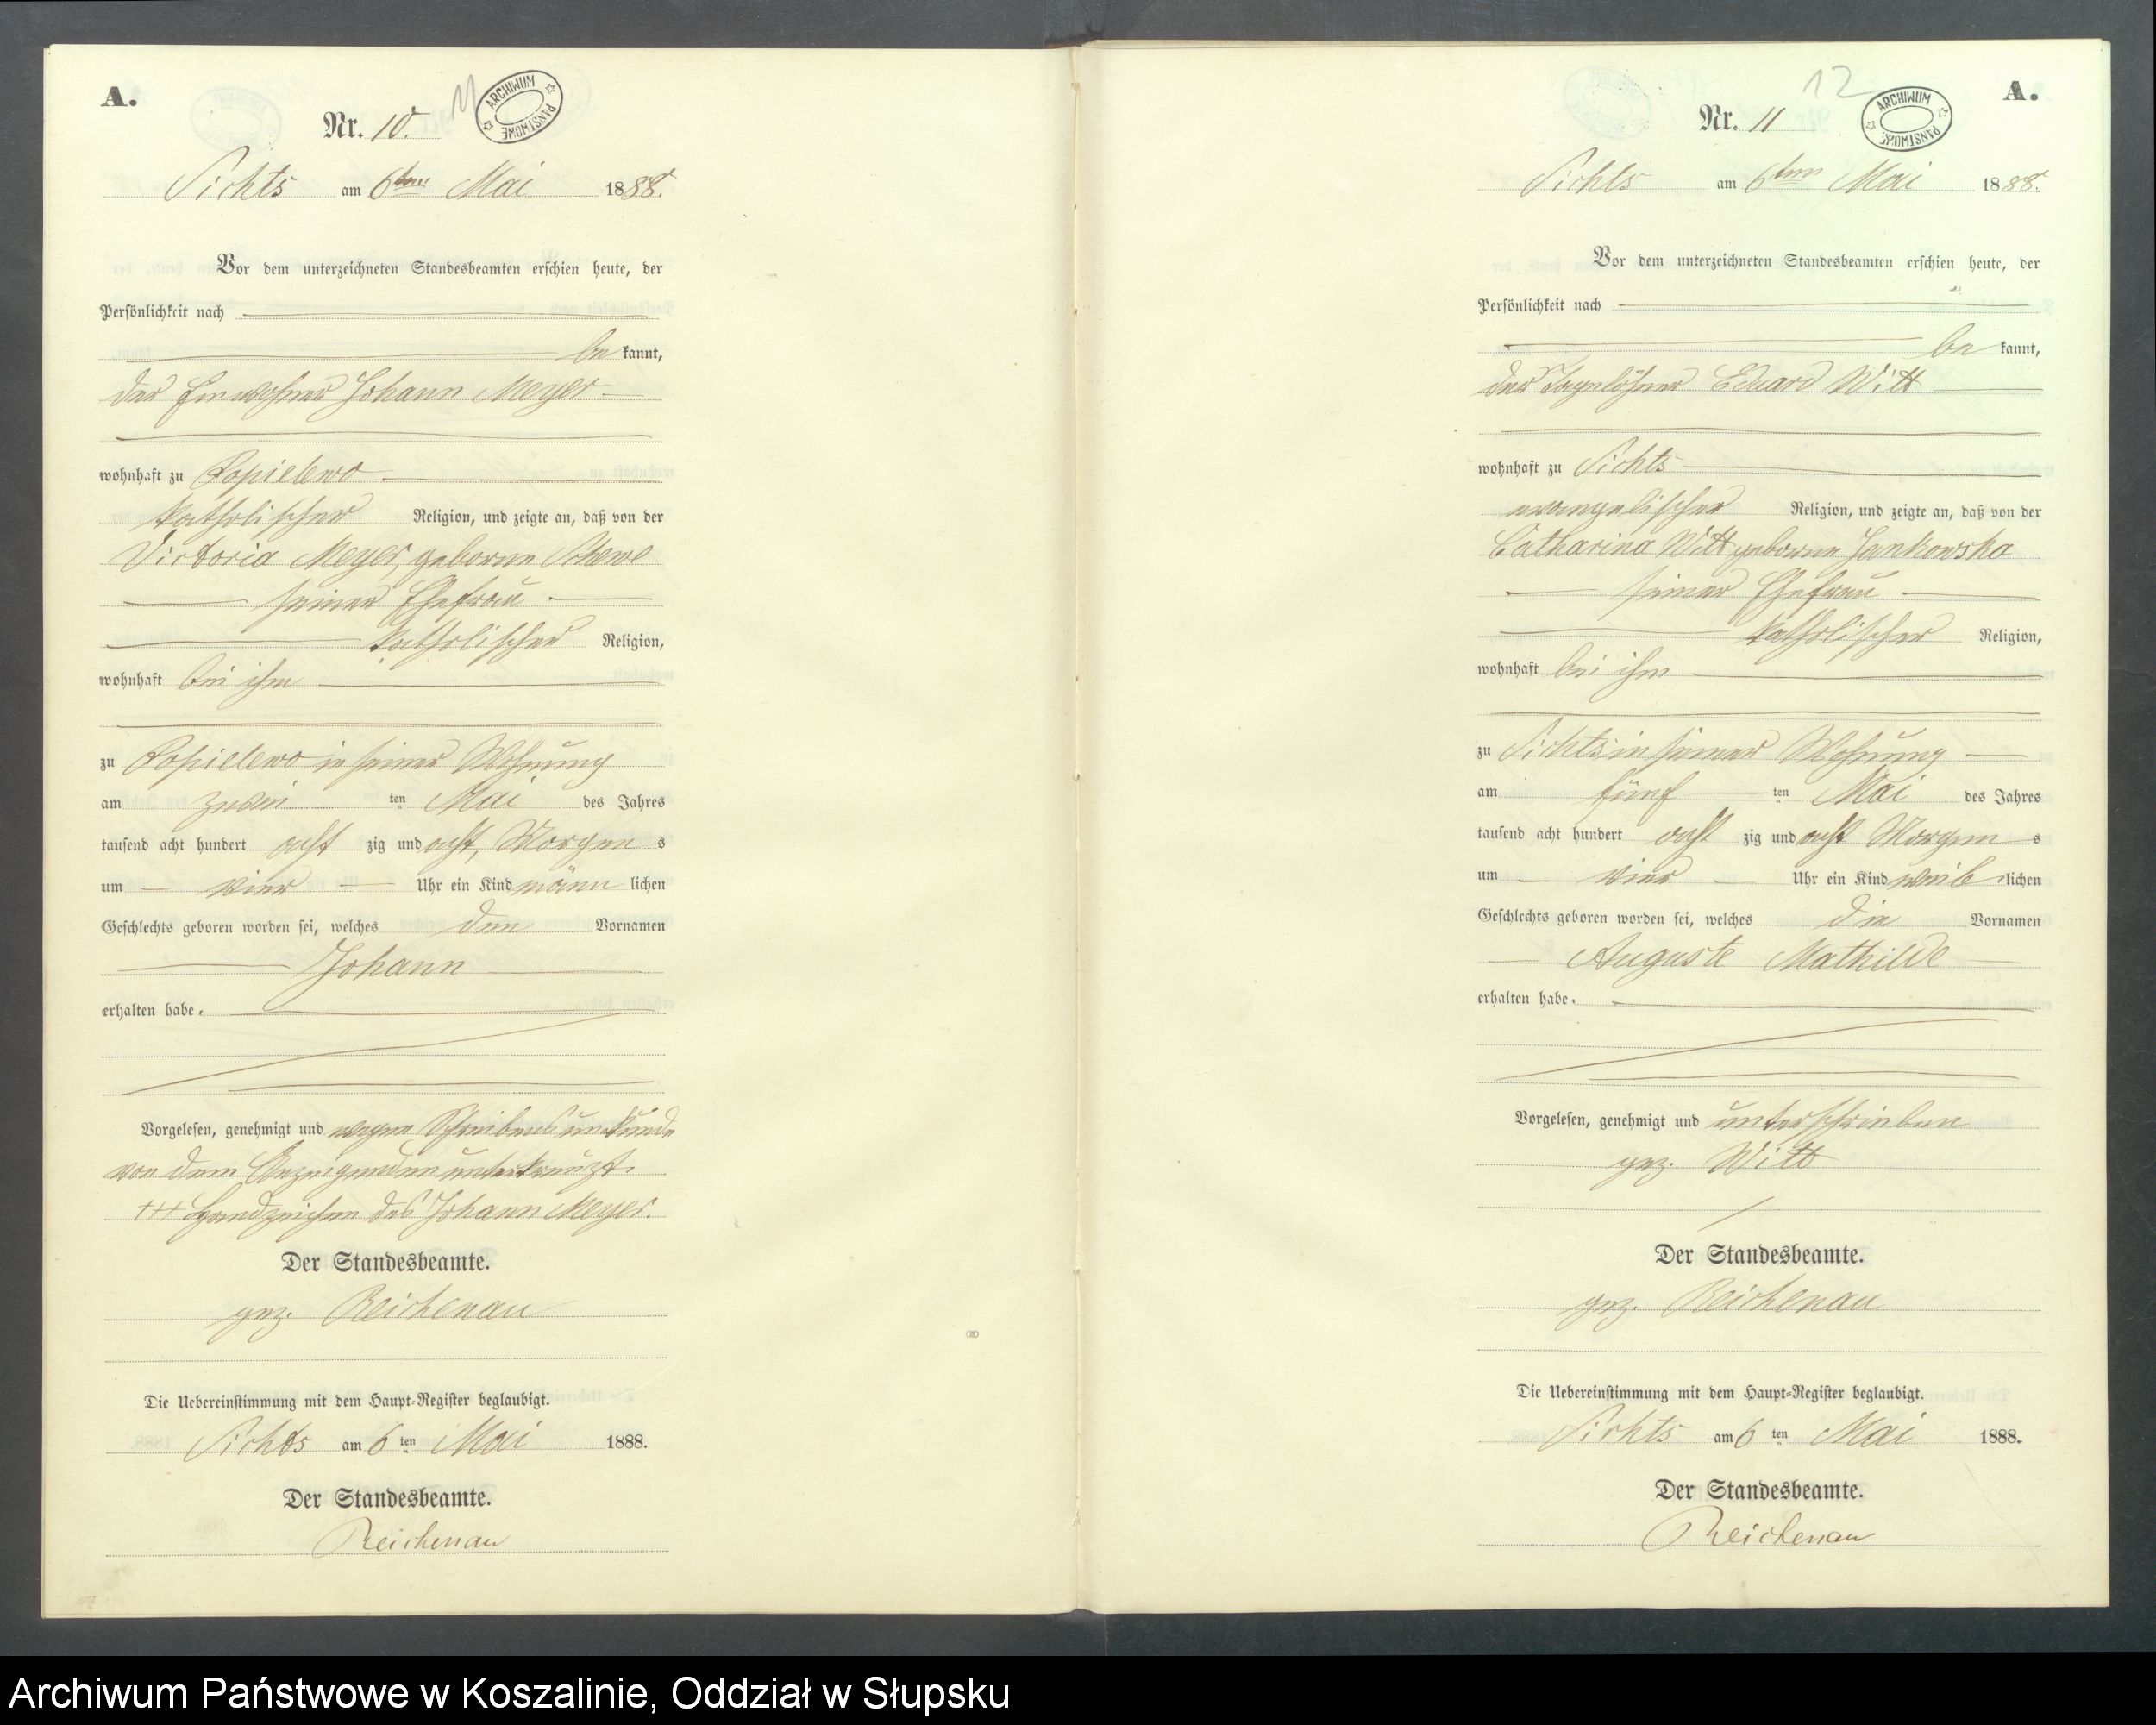 A.
Nr. 10.
11
ARCHIWUM PAŃSTWOWE
Sichts am 6ten Mai 1888.
Vor dem unterzeichneten Standesbeamten erschien heute, der
Persönlichkeit nach
be kannt,
der Einwohner Johann Meyer
wohnhaft zu Popielewo
katholischer Religion, und zeigte an, daß von der
Victoria Meyer, geborene Schewe
seiner Ehefrau
katholischer Religion,
wohnhaft bei ihm
zu Popielewo in seiner Wohnung
am zwei ten Mai des Jahres
tausend acht hundert acht zig und acht, Morgen s
um vier Uhr ein Kind männ lichen
Geschlechts geboren worden sei, welches den Vornamen
Johann
erhalten habe.
Vorgelesen, genehmigt und wegen Schreibensunkunde
von dem Anzeigenden unterkreuzt.
+++ Handzeichen des Johann Meyer.
Der Standesbeamte.
gez. Reichenau
Die Uebereinstimmung mit dem Haupt-Register beglaubigt.
Sichts am 6 ten Mai 1888.
Der Standesbeamte.
Reichenau
A.
12
Nr. 11
ARCHIWUM PAŃSTWOWE
Sichts am 6ten Mai 1888.
Vor dem unterzeichneten Standesbeamten erschien heute, der
Persönlichkeit nach
be kannt,
der Tagelöhner Eduard Witt
wohnhaft zu Sichts
evangelischer Religion, und zeigte an, daß von der
Catharina Witt geborene Jankowska
seiner Ehefrau
katholischer Religion,
wohnhaft bei ihm
zu Sichts in seiner Wohnung
am fünf ten Mai des Jahres
tausend acht hundert acht zig und acht Morgen s
um vier Uhr ein Kind weib lichen
Geschlechts geboren worden sei, welches die Vornamen
Auguste Mathilde
erhalten habe.
Vorgelesen, genehmigt und unterschrieben
gez. Witt
Der Standesbeamte.
gez. Reichenau
Die Uebereinstimmung mit dem Haupt-Register beglaubigt.
Sichts am 6 ten Mai 1888.
Der Standesbeamte.
Reichenau
Archiwum Państwowe w Koszalinie, Oddział w Słupsku